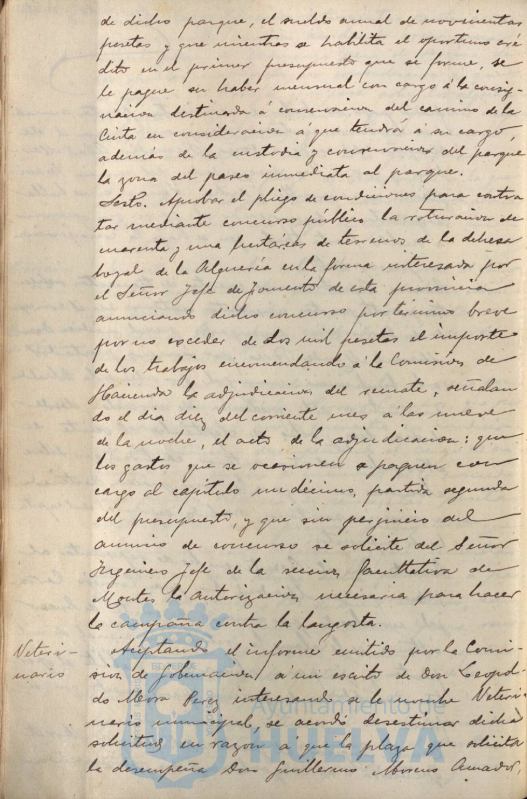 de dicho parque, el sueldo anual de novecientas
pesetas y que mientras se habilita el oportuno cré
dito en el primer presupuesto que se forme, se
le pague su haber mensual con cargo á la consig-
nacion destinada á conservacion del camino de la
Cinta en consideracion á que tendrá á su cargo,
además de la custodia y conservacion del parque
la zona del paseo inmediata al parque.
Sesto. Aprobar el pliego de condiciones para contra
tar mediante concurso público la roturacion de
cuarenta y una hectáreas de terrenos de la dehesa
boyal de la Alquería en la forma interesada por
el Señor Jefe de Fomento de esta provincia
anunciando dicho concurso por término breve
por no exceder de dos mil pesetas el importe
de los trabajos encomendando á la Comision de
Hacienda la adjudicacion del remate, señalan
do el dia diez del corriente mes á las nueve
de la noche, el acto de la adjudicacion: que
los gastos que se ocasionen se paguen con
cargo al capítulo undécimo, partida segunda
del presupuesto, y que sin perjuicio del
anuncio de concurso se solicite del Señor
Ingeniero Jefe de la seccion facultativa de
Montes la autorizacion necesaria para hacer
la campaña contra la langosta.
Veteri-
nario
Aceptando el informe emitido por la Comi-
sion de Gobernacion á un escrito de Don Leopol-
do Mora Perez interesando se le nombre Veteri
nario municipal, se acordó desestimar dicha
solicitud en razon á que la plaza que solicita
la desempeña Don Guillermo Moreno Amador,
Ayuntamiento de
HUELVA